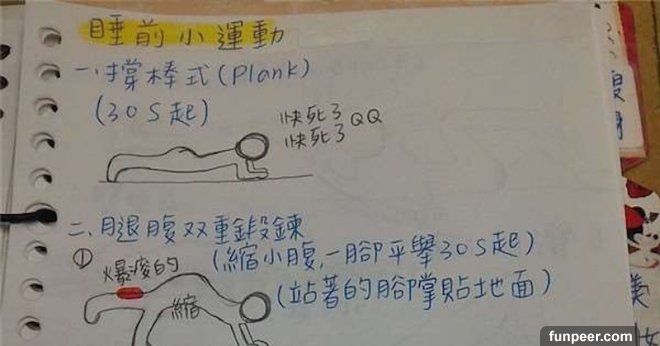 睡前小運動
一、撐棒式(Plank)
(30S起)
快死了QQ
快死了
二、腿腹双重鍛鍊
① 爆痠的
(縮小腹,一腳平舉30S起)
縮
(站著的腳掌貼地面)
funpeer.com